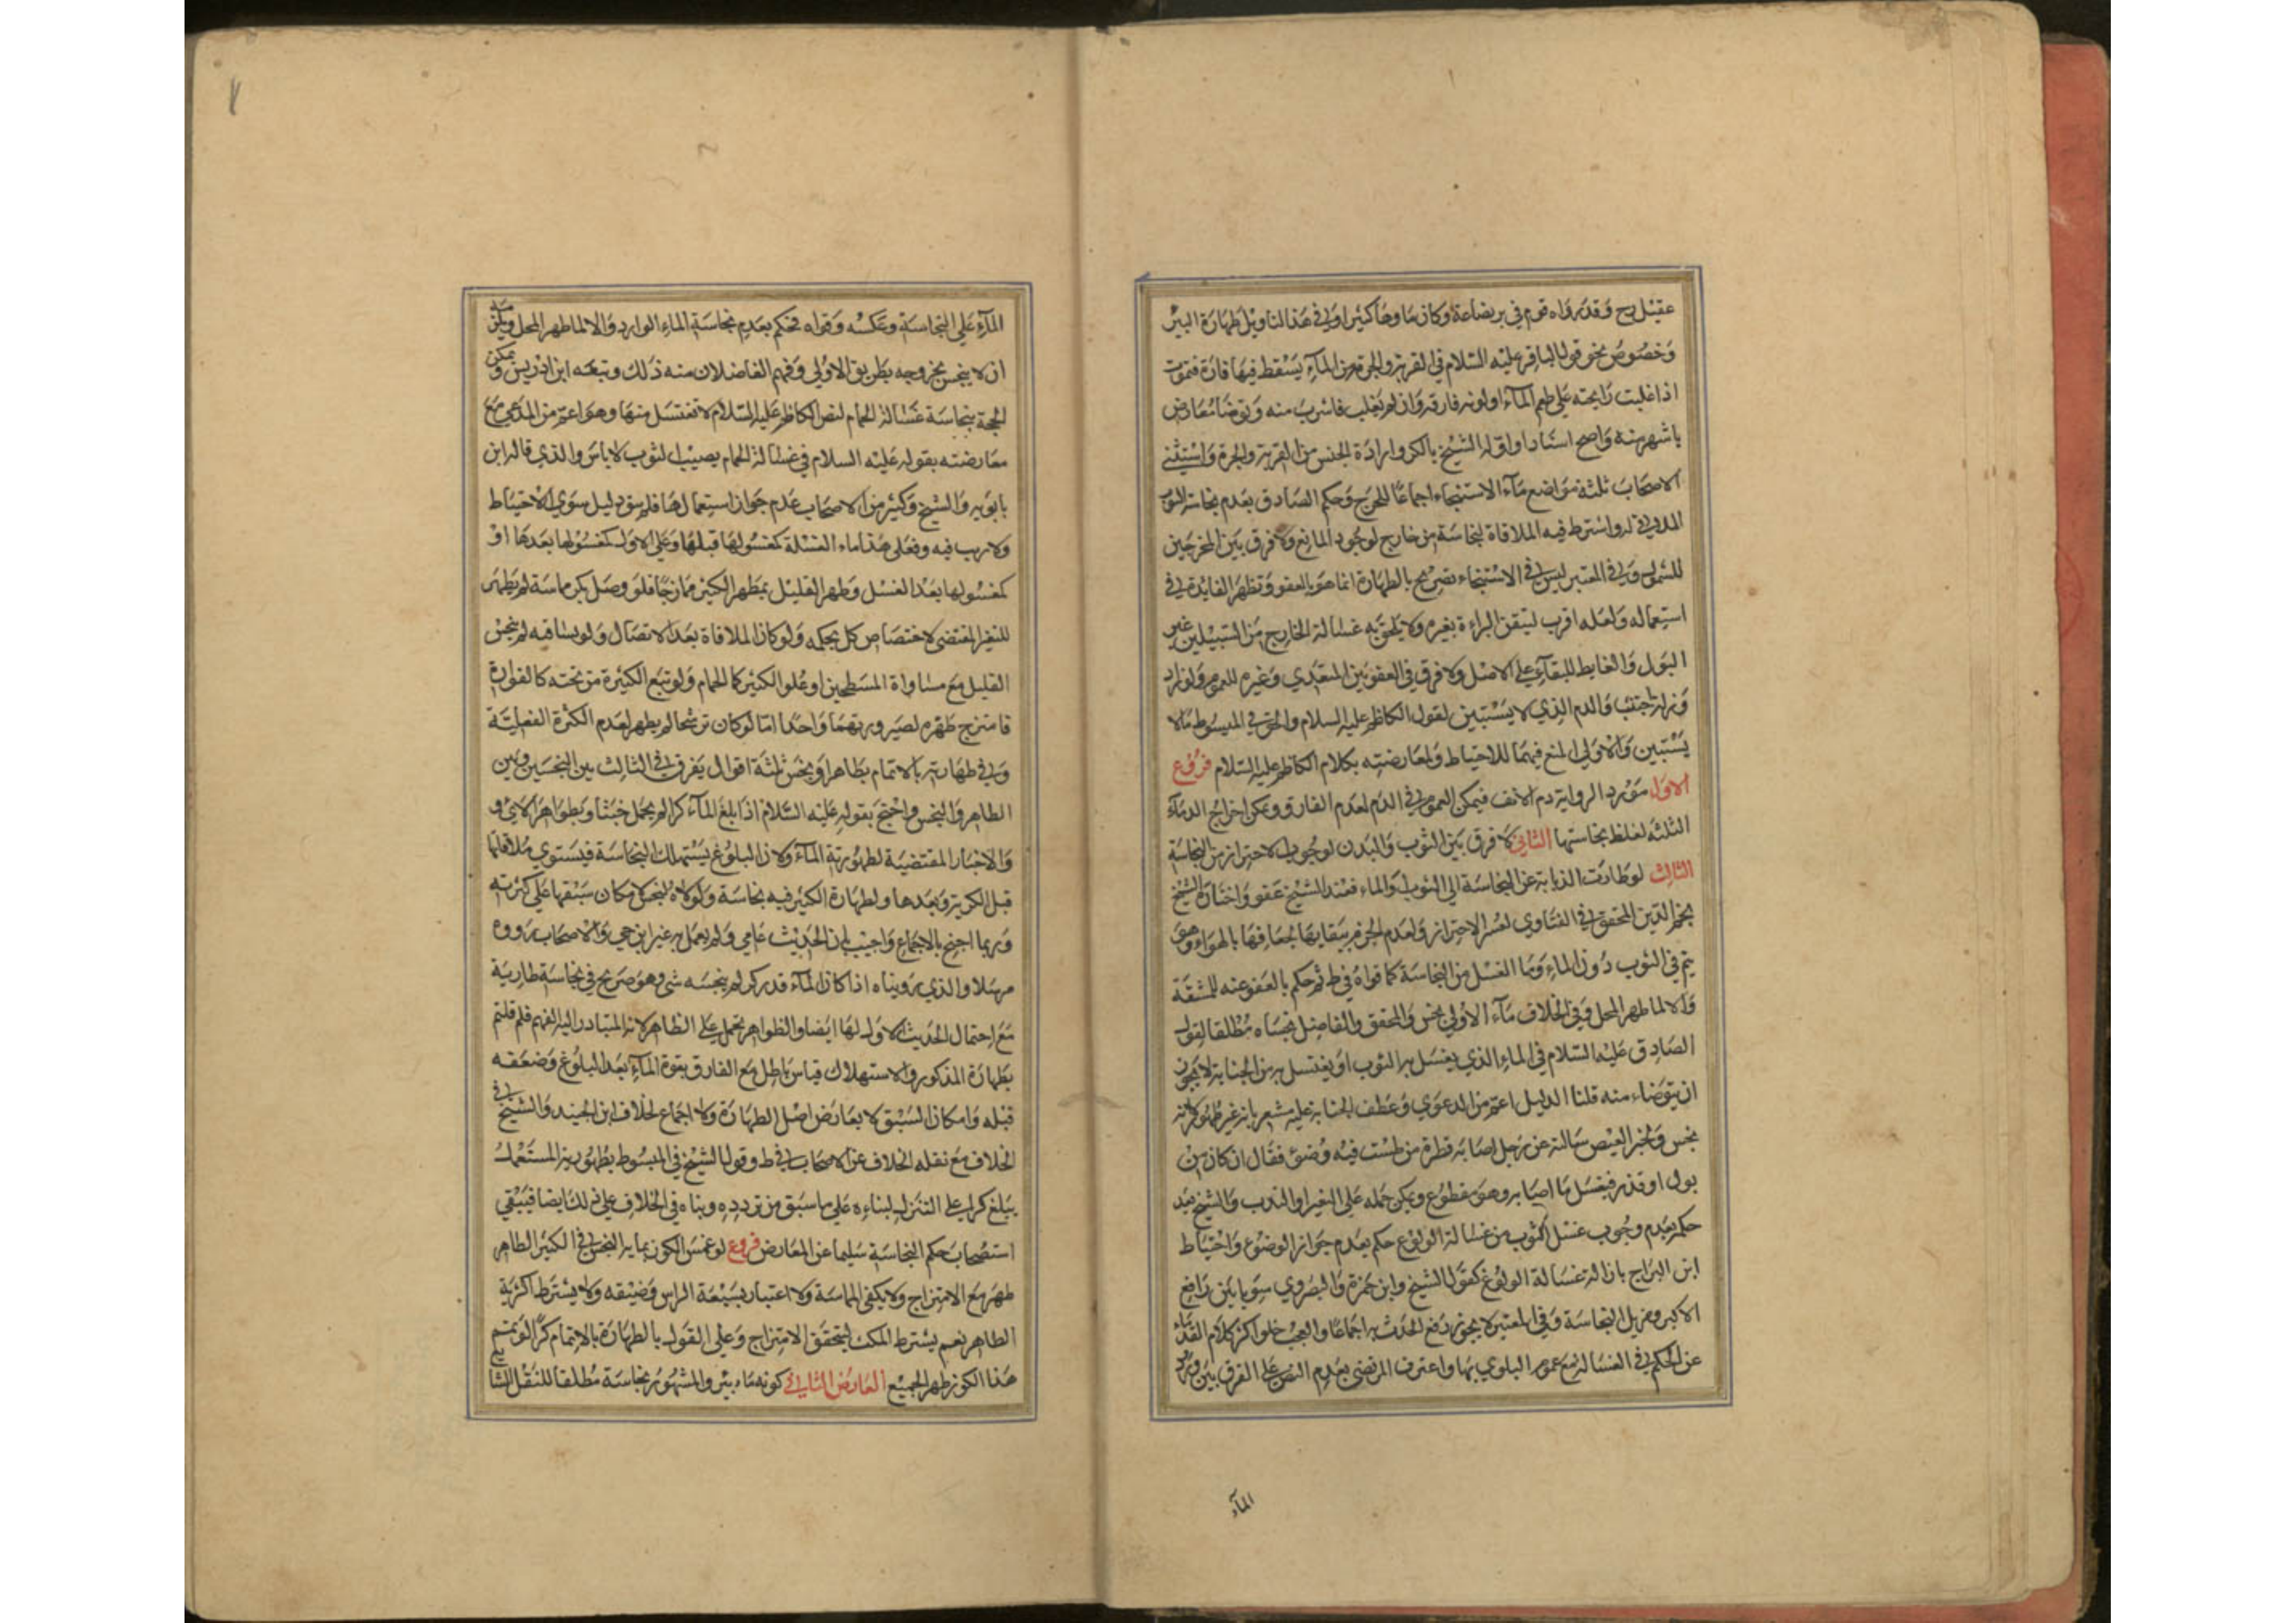 عقيل رح وقد رواه قوم في بئر بضاعة وكان ماوها كثيرا وفي هذا التاويل طهارة البئر
وخصوص نحو قول الباقر عليه السلام في القربة والجرة من المآء يسقط فيها فارة فتموت
اذا غلبت رايحته على طعم المآء او لونه فارقه وان لم يغلب فاشرب منه وتوضا معارض
باشهر منه واصح اسنادا واوله الشيخ بالكر وارادة الجنس من القربة والجرة واستثنى
الاصحاب ثلثة مواضع مآء الاستنجاء اجماعا للحرج وحكم الصادق بعدم نجاسة الثوب
الملاقي له واشترط فيه الملاقاة لنجاسة من خارج لوجود المانع ولا فرق بين المخرجين
للشمول وفي المعتبر ليس في الاستنجاء تصريح بالطهارة انما هو بالعفو وتظهر الفايدة في
استعماله ولعله اقرب لتيقن البراءة بغيره ولا يلحق به غسالة الخارج من السبيلين غير
البول والغايط للبقآء على الاصل ولا فرق في العفو بين المتعدي وغيره للعموم ولو زاد
وزنه اجتنب والدم الذي لا يستبين لقول الكاظم عليه السلام والحق في المبسوط ما لا
يستبين والاولى المنع فيهما للاحتياط ولمعارضته بكلام الكاظم عليه السلام فروع
الاول مورد الرواية دم الانف فيمكن العموم في الدم لعدم الفارق ويمكن اخراج الدمآء
الثلثة لغلظ نجاستها الثاني لا فرق بين الثوب والبدن لوجوب الاحتراز من النجاسة
الثالث لو طارت الذبابة عن النجاسة الى الثوب او الماء فعند الشيخ عفو واختاره الشيخ
نجم الدين المحقق في الفتاوي لعسر الاحتراز ولعدم الجزم ببقايها لجفافها بالهواء وهو
يتم في الثوب دون الماء وما الغسل من النجاسة كما قواه في ط ثم حكم بالعفو عنه للمشقة
والا لما طهر المحل وفي الخلاف مآء الاولى نجس والمحقق والفاضل نجساه مطلقا لقول
الصادق عليه السلام في الماء الذي يغسل به الثوب او يغتسل به من الجنابة لا يجوز
ان يتوضاء منه قلنا الدليل اعم من الدعوي وعطف الجنابة عليه مشعر بانه غير طهور لا انه
نجس ولخبر العيص سالته عن رجل اصابه قطرة من طست فيه وضوء فقال ان كان من
بول او قذر فيغسل ما اصابه وهو مقطوع ويمكن حمله على التغير او الندب والشيخ بعد
حكمه بعدم وجوب غسل الثوب من غسالة الولوغ حكم بعدم جواز الوضوء واحتاط
ابن البراج بازالة غسالة الولوغ كقول الشيخ وابن حمزة والبصروي سويا بين رافع
الاكبر ومزيل النجاسة وفي المعتبر لا يجوز رفع الحدث به اجماعا والعجب خلو اكثر كلام القدماء
عن الحكم في الغسالة مع عموم البلوي بها واعترف المرتضى بعدم النص على الفرق بين ورود
المآء
المآء على النجاسة وعكسه وقواه فحكم بعدم نجاسة الماء الوارد والا لما طهر المحل
ان لا ينجس بخروجه بطريق الاولى وفهم الفاضلان منه ذلك وتبعه ابن ادريس ويمكن
الحجة بنجاسة غسالة الحمام لنص الكاظم عليه السلام لا تغتسل منها وهو اعم من المدعى مع
معارضته بقوله عليه السلام في غسالة الحمام يصيب الثوب لا باس والذي قاله ابن
بابويه والشيخ وكثير من الاصحاب عدم جواز استعمالها فلم يبق دليل سوى الاحتياط
ولا ريب فيه وفعلى هذا ماء الغسلة كمغسولها قبلها وعلى الاول كمغسولها بعدها او
كمغسولها بعد الغسل وطهر القليل بمطهر الكثير ممازجا فلو وصل بكر مماسة لم يطهر
للتميز المقتضى لاختصاص كل بحكمه ولو كان الملاقاة بعد الاتصال ولو بساقيه لم ينجس
القليل مع مساواة المسطحين او علو الكثير كما الحمام ولو تبع الكثيرة من تحته كالفوارة
فامتزج طهره لصيرورتهما واحدا اما لو كان ترشحا لم يطهر لعدم الكثرة الفعلية
وفي طهارته بالاتمام بطاهر او نجس ثلثة اقوال يفرق في الثالث بين النجسين وبين
الطاهر والنجس واحتج بقوله عليه السلام اذا بلغ المآء كرا لم يحمل خبثا وبظواهر الاي و
والاخبار المقتضية لطهورية المآء ولان البلوغ يستهلك النجاسة فيستوي ملاقاتها
قبل الكرية وبعدها ولطهارة الكثير فيه نجاسة ولولاه لنجس لامكان سبقها على كثرته
وربما احتج بالاجماع واجيب بان الحديث عامي ولم يعمل به غير ابن حي والاصحاب رووه
مرسلا والذي رويناه اذا كان المآء قدر كر لم ينجسه شي وهو صريح في نجاسة طارية
مع احتمال الحديث الاول لها ايضا والظواهر تحمل على الظاهر لانه المتبادر الى الفهم فلم قلتم
بطهارة المذكور والاستهلاك قياس باطل مع الفارق بقوة المآء بعد البلوغ وضعفه
قبله وامكان السبق لا يعارض اصل الطهارة ولا اجماع لخلاف ابن الجنيد والشيخ في
الخلاف مع نقله الخلاف عن الاصحاب في ط وقول الشيخ في المبسوط بطهورية المستعمل
يبلغ كرا على التنزل لبناءه على ما سبق من تردده وبناه في الخلاف على ذلك ايضا فيبقي
استصحاب حكم النجاسة سليما عن المعارض فروع لو غمس الكوز بمايه النجس في الكثير الطاهر
طهر مع الامتزاج ولا يكفي المماسة ولا اعتبار بسعة الراس وضيقه ولا يشترط اكثرية
الطاهر نعم يشترط المكث ليتحقق الامتزاج وعلى القول بالطهارة بالاتمام كرا لو تمم
هذا الكوز طهر الجميع العارض الثاني كونه ماء بئر والمشهور نجاسة مطلقا للنقل الشايع